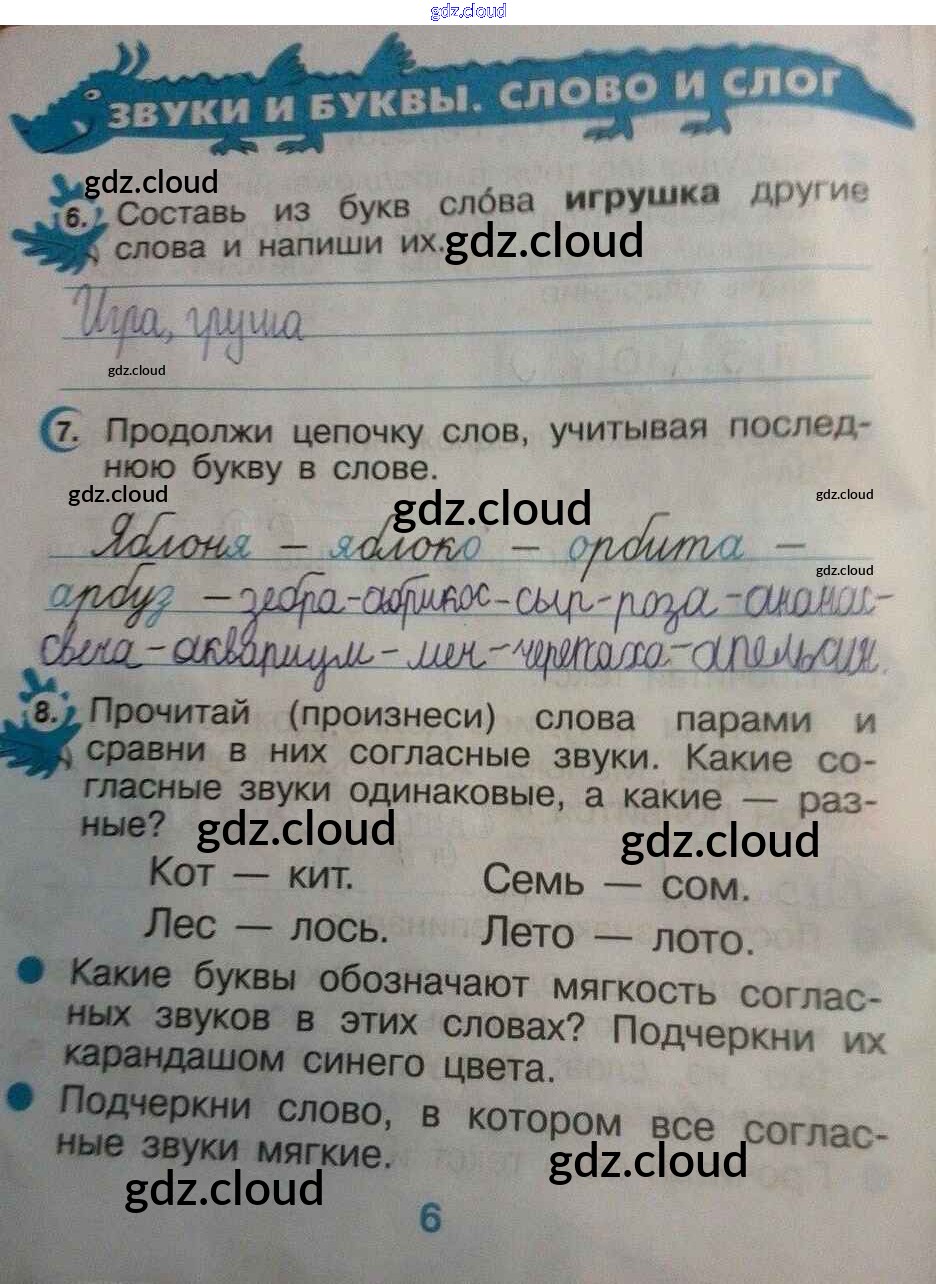 gdz.cloud
ЗВУКИ И БУКВЫ. СЛОВО И СЛОГ
gdz.cloud
6. Составь из букв сло́ва игрушка другие
слова и напиши их.
gdz.cloud
Игра, груша
gdz.cloud
7. Продолжи цепочку слов, учитывая послед-
нюю букву в слове.
gdz.cloud
gdz.cloud
gdz.cloud
Яблоня – яблоко – орбита –
gdz.cloud
арбуз – зебра-абрикос-сыр-роза-ананас-
свеча-аквариум-меч-черепаха-апельсин.
8. Прочитай (произнеси) слова парами и
сравни в них согласные звуки. Какие со-
гласные звуки одинаковые, а какие — раз-
ные?
gdz.cloud
gdz.cloud
Кот — кит. Семь — сом.
Лес — лось. Лето — лото.
Какие буквы обозначают мягкость соглас-
ных звуков в этих словах? Подчеркни их
карандашом синего цвета.
Подчеркни слово, в котором все соглас-
ные звуки мягкие.
gdz.cloud
gdz.cloud
6